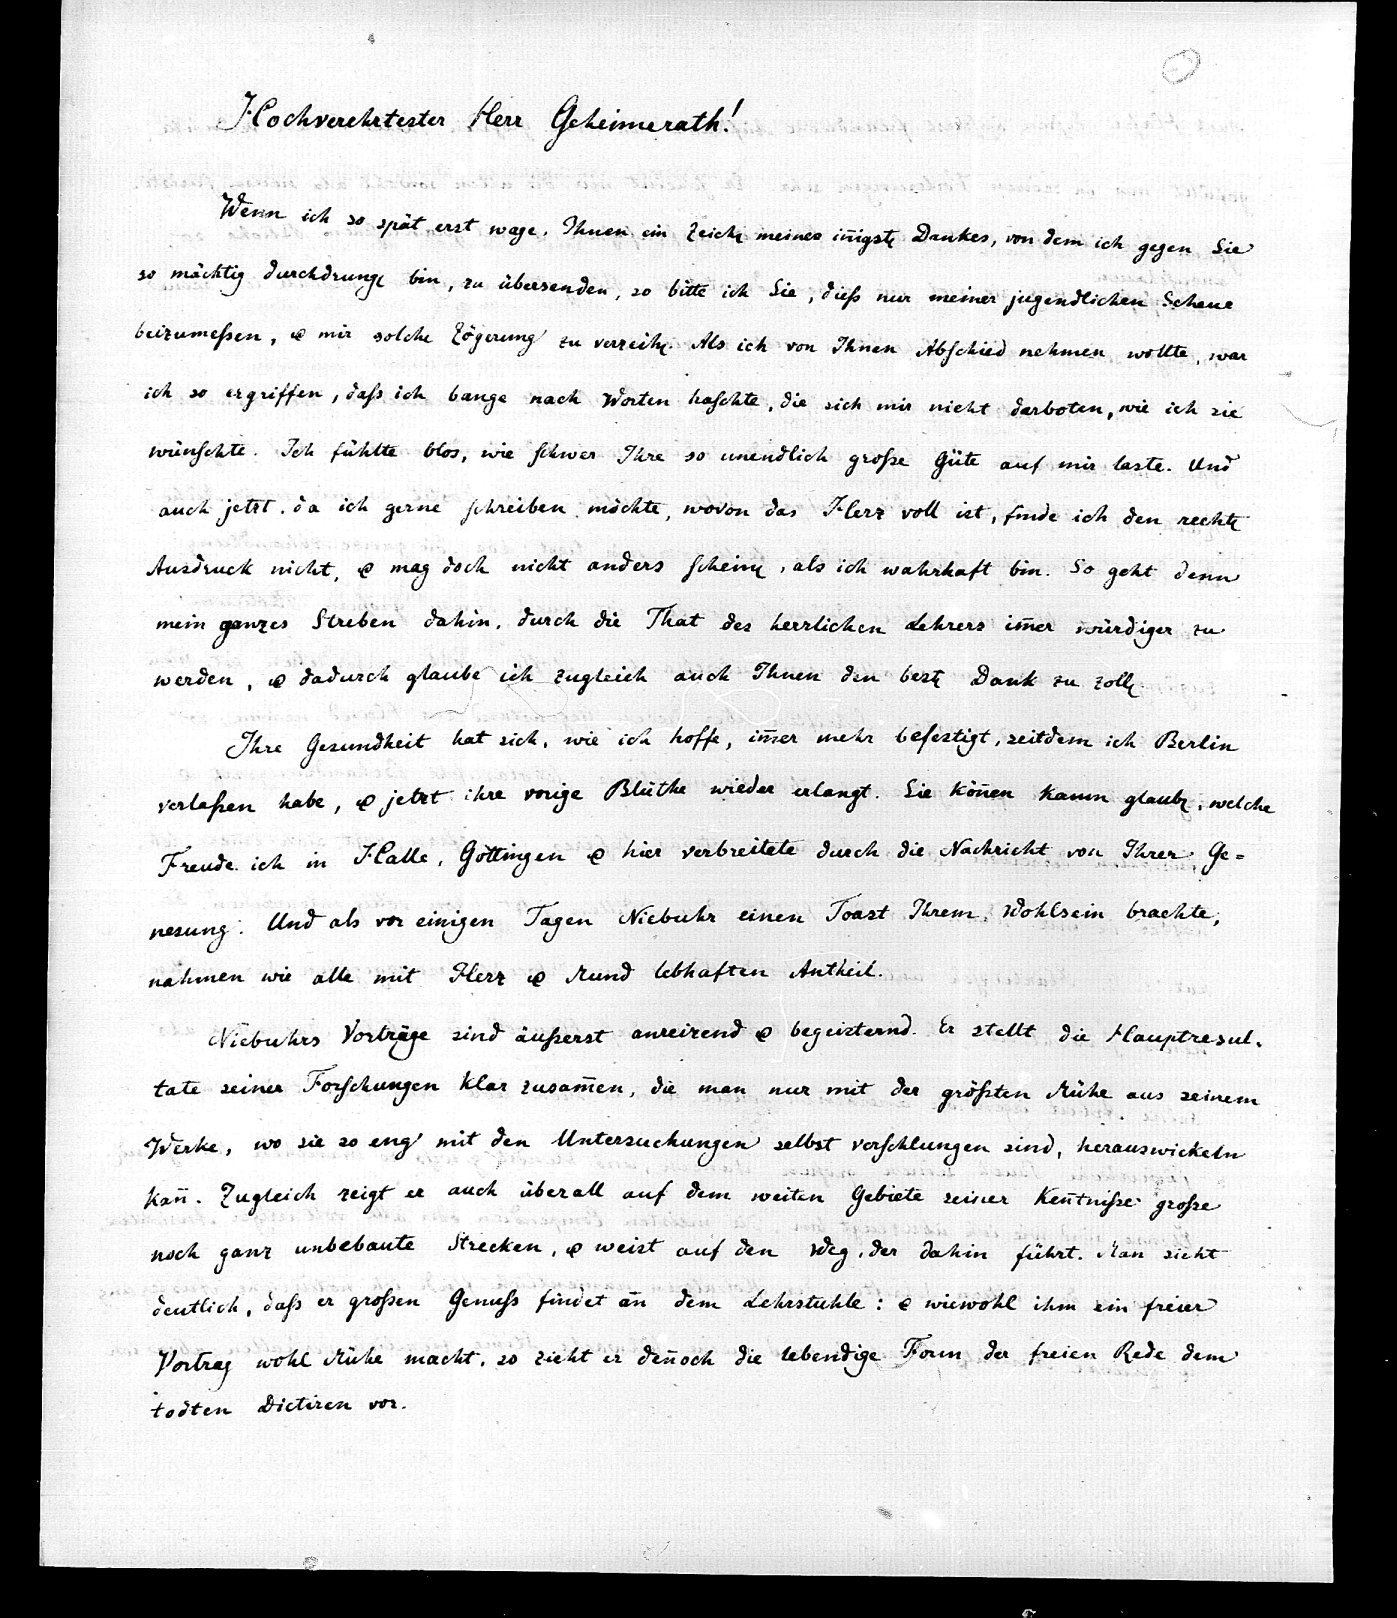 Hochverehrtester Herr Geheimerath!
Wenn ich so spät erst wage, Ihnen ein Zeichen meines iñigsten Dankes, von dem ich gegen Sie
so mächtig durchdrungen bin, zu übersenden, so bitte ich Sie, dieß nur meiner jugendlichen Scheue
beizumeßen, & mir solche Zögerung zu verzeihen. Als ich von Ihnen Abschied nehmen wollte, war
ich so ergriffen, daß ich bange nach Worten haschte, die sich mir nicht darboten, wie ich sie
wünschte. Ich fühlte blos, wie schwer Ihre so unendlich große Güte auf mir laste. Und
auch jetzt, da ich gerne schreiben möchte, wovon das Herz voll ist, finde ich den rechten
Ausdruck nicht, & mag doch nicht anders scheinen, als ich wahrhaft bin. So geht denn
mein ganzes Streben dahin, durch die That des herrlichen Lehrers im̄er würdiger zu
werden, & dadurch glaube ich zugleich auch Ihnen den besten Dank zu zollen.
Ihre Gesundheit hat sich, wie ich hoffe, im̄er mehr befestigt, seitdem ich Berlin
verlaßen habe, & jetzt ihre vorige Blüthe wieder erlangt. Sie köñen kaum glauben, welche
Freude ich in Halle, Göttingen & hier verbreitete durch die Nachricht von Ihrer Ge=
nesung. Und als vor einigen Tagen Niebuhr einen Toast Ihrem Wohlsein brachte,
nahmen wie alle mit Herz & Mund lebhaften Antheil.
Niebuhrs Vorträge sind äußerst anreizend & begeisternd. Er stellt die Hauptresul-
tate seiner Forschungen klar zusam̄en, die man nur mit der größten Mühe aus seinem
Werke, wo sie so eng mit den Untersuchungen selbst verschlungen sind, herauswickeln
kañ. Zugleich zeigt er auch überall auf dem weiten Gebiete seiner Keñtniße große
noch ganz unbebaute Strecken, & weist auf den Weg, der dahin führt. Man sieht
deutlich, daß er großen Genuß findet an dem Lehrstuhle: & wiewohl ihm ein freier
Vortrag wohl Mühe macht, so zieht er deñoch die lebendige Form der freien Rede dem
todten Dictiren vor.